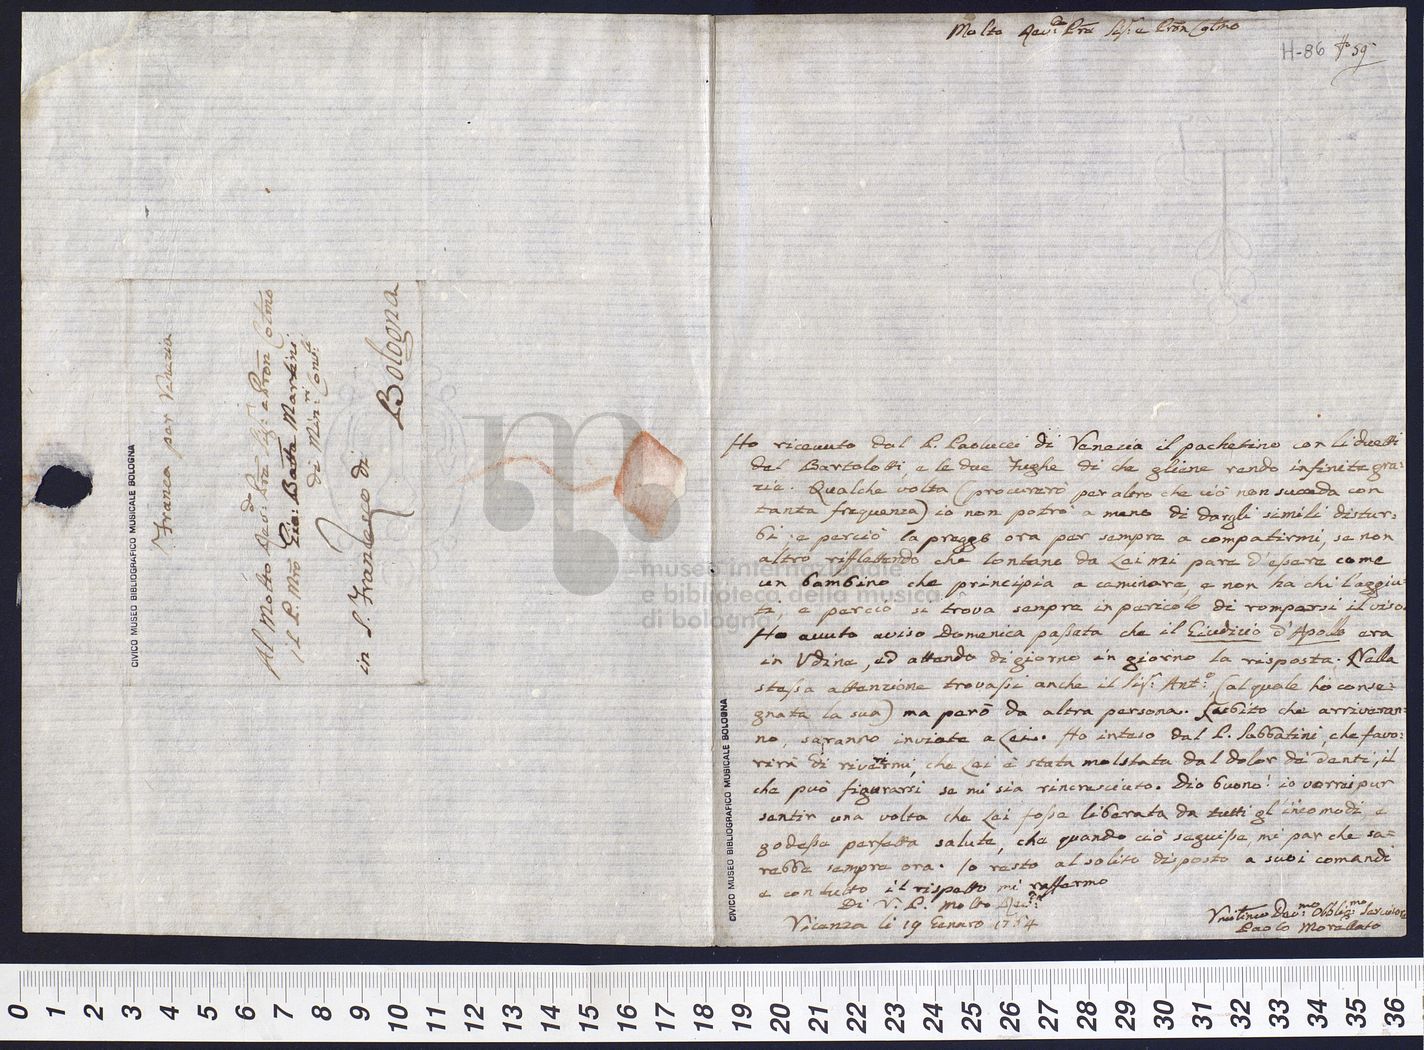 Molto Rev:do Pre Sig:e e Pron Colmo
H-86 59
Ho riceuuto dal P. Paolucci di Venezia il pachetino con li duetti
del Bartolotti, e le due Fughe di che gliene rendo infinite gra:
zie. Qualche volta (procurerò per altro che ciò non succeda con
tanta frequenza) io non potrò a meno di dargli simili distur:
bi; e perciò la preggo ora per sempre a compatirmi, se non
altro riflettendo che lontano da Lei mi pare d'essere come
un bambino che principia a caminare, e non ha chi l'aggiu:
ti, e perciò si trova sempre in pericolo di rompersi il viso.
Ho auuto auiso Domenica passata che il Giudizio d'Apollo era
in Udine, ed attendo di giorno in giorno la risposta. Nella
stessa attenzione trovassi anche il Sig:r Ant:o (al quale hò conse:
gnata la sua) ma però da altra persona. Subito che arriveran:
no, saranno inviate a Lei. Ho inteso dal P. Sabbatini, che favo:
rirà di riverirmi, che Lei è stata molstata dal dolor de' denti, il
che può figurarsi se mi sia rincresciuto. Dio buono! io vorrei pur
sentir una volta che Lei fosse liberata da tutti gl'incomodi, e
godesse perfetta salute, che quando ciò seguisse, mi par che sa=
rebbe sempre ora. Io resto al solito disposto a suoi comandi
e con tutto il rispetto mi raffermo
Di V. P. Molto Rev:
Vicenza li 19 Genaro 1764
Dev:mo Obblig:mo Servitore
Paolo Morellato
Franca per Venezia
Al Molto Rev:do Pre Sig:e e Pron Colmo
il P. Mro Gio: Batta Martini
di Min:ri Con:li
in S. Francesco di
Bologna
CIVICO MUSEO BIBLIOGRAFICO MUSICALE BOLOGNA
CIVICO MUSEO BIBLIOGRAFICO MUSICALE BOLOGNA
museo internazionale
e biblioteca della musica
di bologna
0 1 2 3 4 5 6 7 8 9 10 11 12 13 14 15 16 17 18 19 20 21 22 23 24 25 26 27 28 29 30 31 32 33 34 35 36